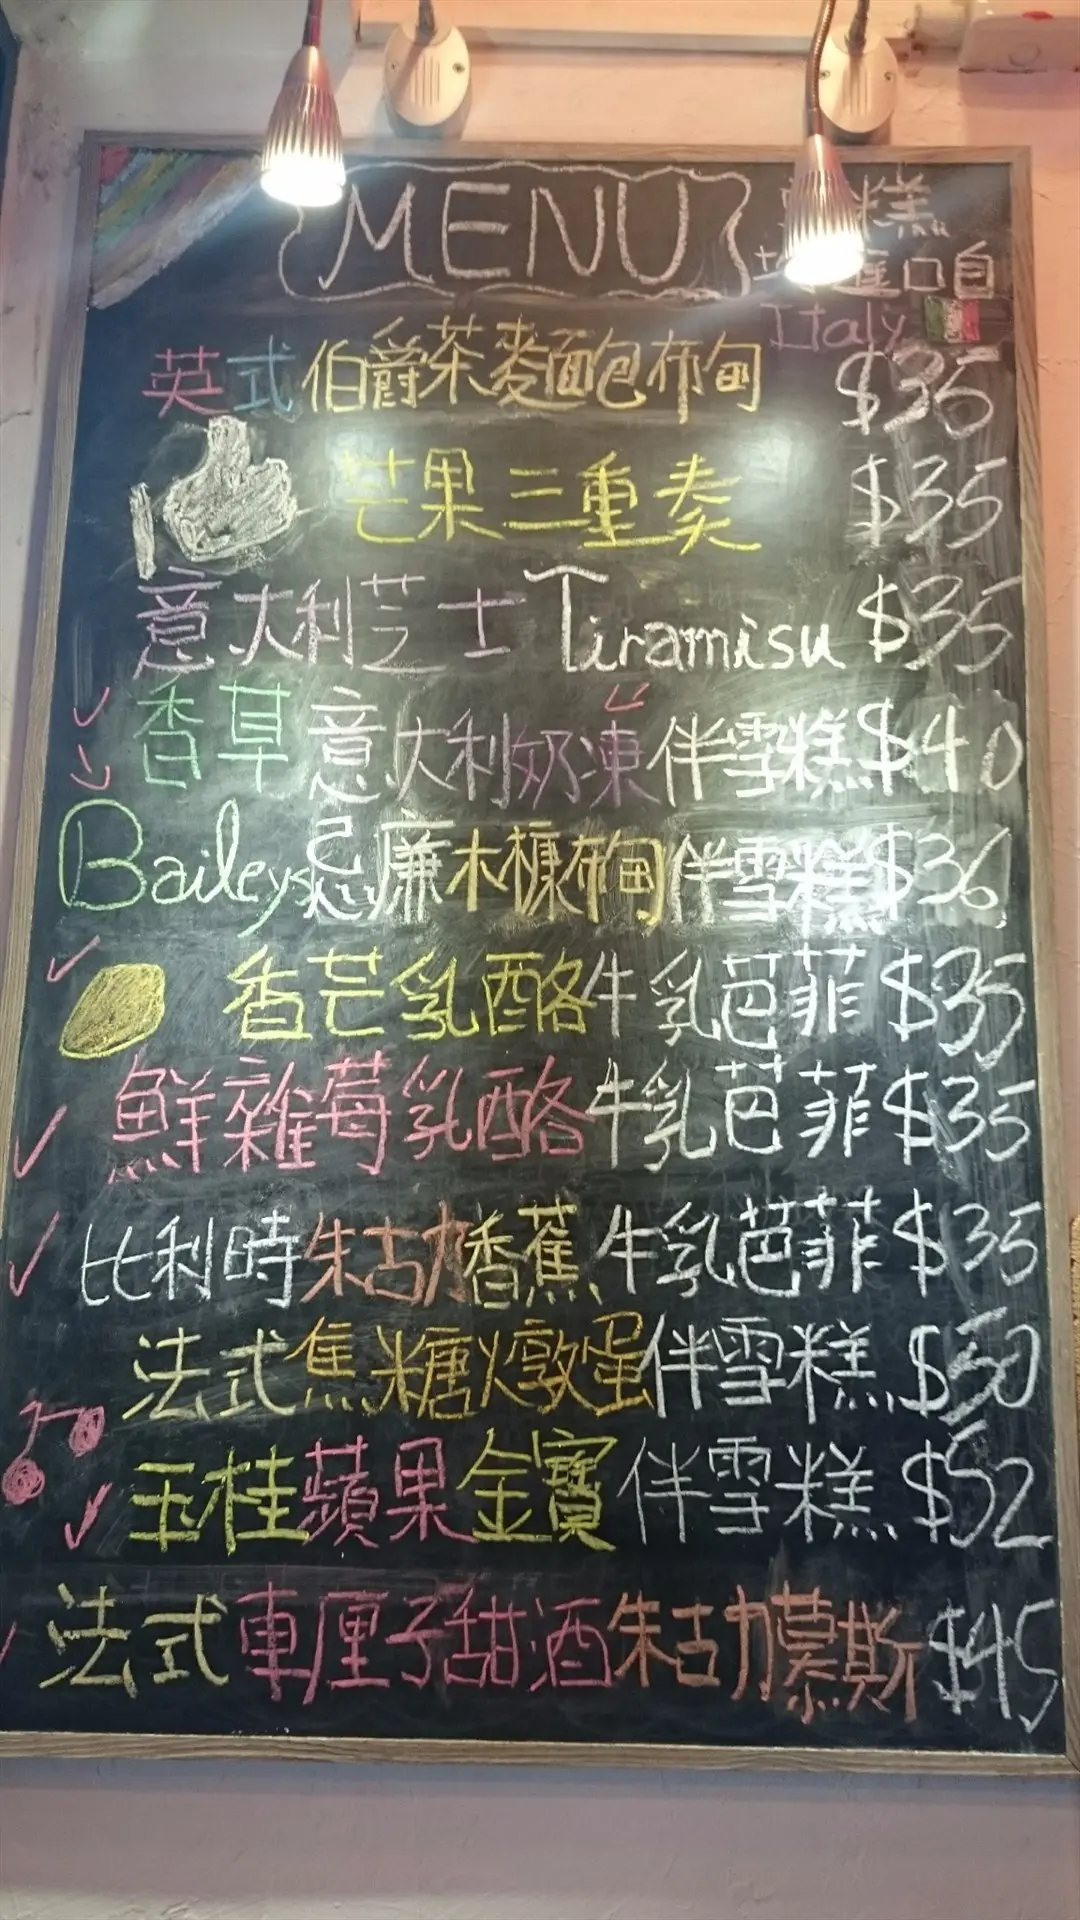 MENU
糕
口自
Italy
英式伯爵茶麥麵包布甸 $35
芒果三重奏 $35
意大利芝士Tiramisu $35
香草意大利奶凍伴雪糕$40
Baileys忌廉木槺布甸伴雪糕$36
香芒乳酪牛乳芭菲$35
鮮雜莓乳酪牛乳芭菲$35
比利時朱古力香蕉牛乳芭菲$35
法式焦糖燉蛋伴雪糕$50
玉桂蘋果金寶伴雪糕$52
法式車厘子甜酒朱古力慕斯$45